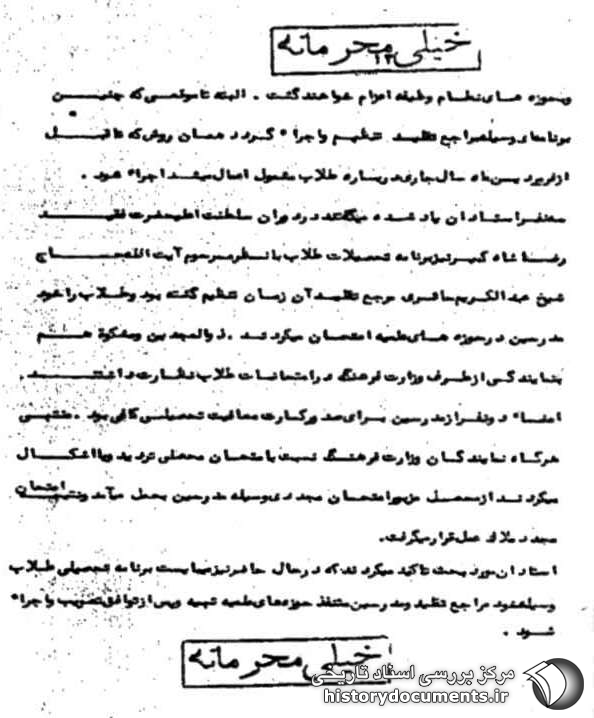 خیلی محرمانه
وحوزه های نظام وظیفه اعزام خواهند گشت . البته تا موقعی که چنین
برنامه ای وسیله مراجع تقلید تنظیم و اجراء گردد همان روش که تا قبل
از فروردین ماه سال جاری درباره طلاب مشمول اعمال میشد اجراء شود .
سه نفر استادان یاد شده میگفتند در دوران سلطنت اعلیحضرت فقید
رضا شاه کبیر نیز برنامه تحصیلات طلاب با نظر مرحوم آیت الله حاج
شیخ عبدالکریم حائری مرجع تقلید آن زمان تنظیم گشته بود و طلاب را خود
مدرسین در حوزه های علمیه امتحان میکردند . ذوالمجدین و مشکوة هم
بنمایندگی از طرف وزارت فرهنگ در امتحانات طلاب نظارت داشتند
امضاء دو نفر از مدرسین برای صدور کارت معافیت تحصیلی کافی بود . منتهی
هرگاه نمایندگان وزارت فرهنگ نسبت با متحان محصلی تردید ویا اشکال
میکردند از محصل مزبور امتحان مجددی وسیله مدرسین بعمل میآمد و نتیجه امتحان
مجدد ملاک عمل قرار میگرفت.
استادان مورد بحث تاکید میکردند که در حال حاضر نیز میبایست برنامه تحصیلی طلاب
وسیله خود مراجع تقلید و مدرسین متنفذ حوزه های علمیه تهیه وپس از توافق تصویب و اجراء
شود .
خیلی محرمانه
مرکز بررسی اسناد تاریخی
historydocuments.ir